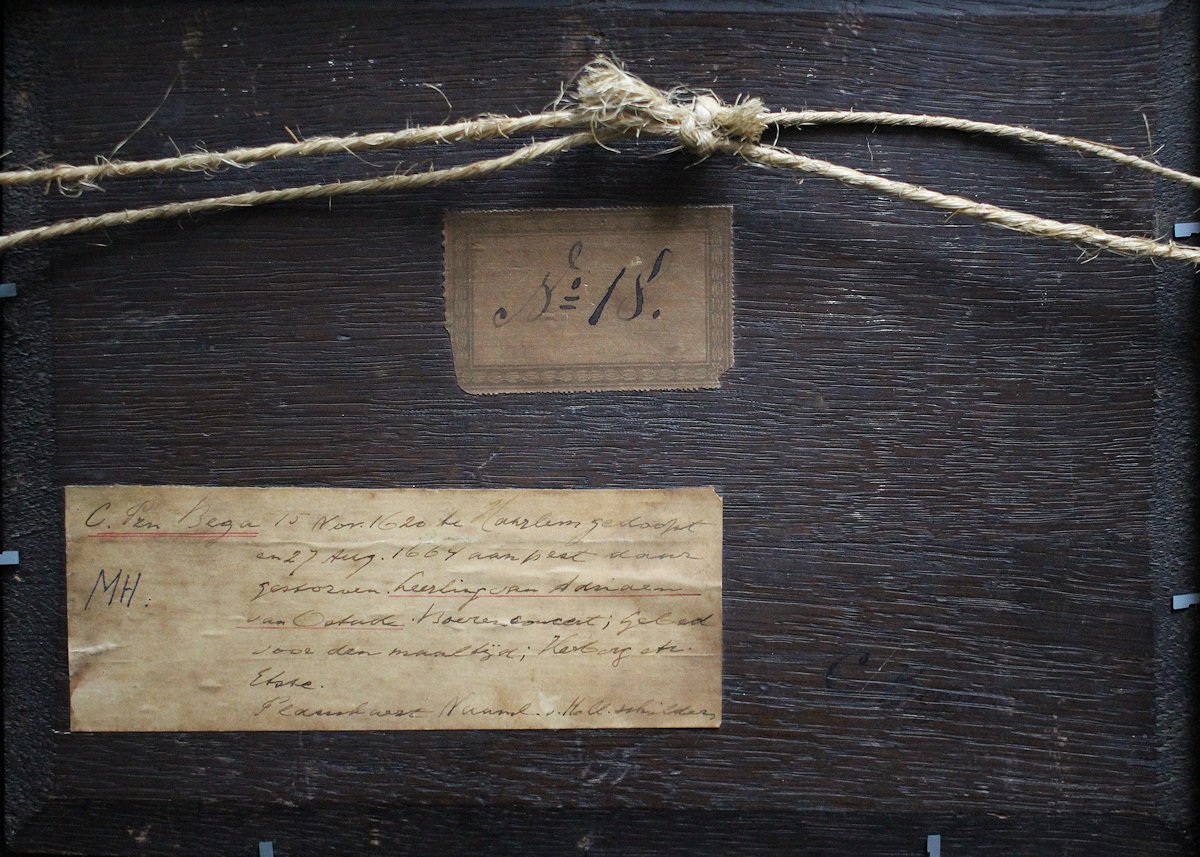 No 18.
C. Pzn Bega 15 Nov. 1620 te Haarlem gedoopt
en 27 Aug. 1664 aan pest daar
MH.
gestorven. Leerling van Adriaen
van Ostade. Boerenconcert; Gebed
voor den maaltijd; Herberg etc.
Etste.
v. Holl. schilders